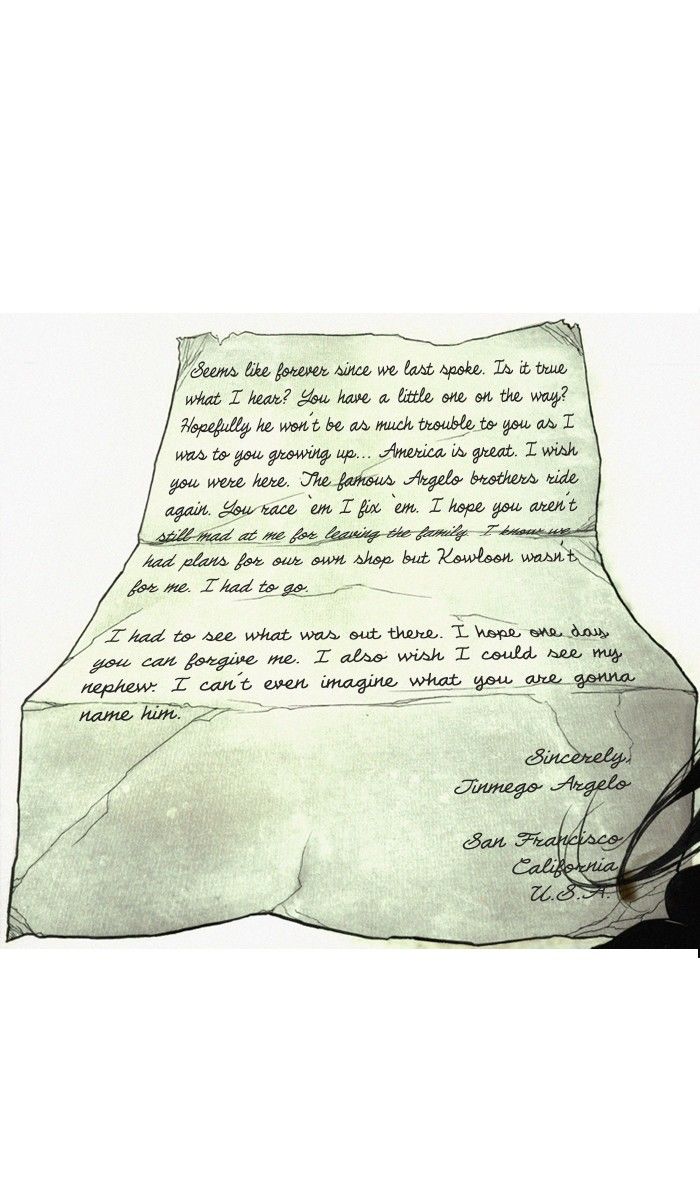 Seems like forever since we last spoke. Is it true
what I hear? You have a little one on the way?
Hopefully he won't be as much trouble to you as I
was to you growing up... America is great. I wish
you were here. The famous Argelo brothers ride
again. You race 'em I fix 'em. I hope you aren't
still mad at me for leaving the family. I know we
had plans for our own shop but Kowloon wasn't
for me. I had to go.
I had to see what was out there. I hope one day
you can forgive me. I also wish I could see my
nephew. I can't even imagine what you are gonna
name him.
Sincerely,
Jinmego Argelo
San Francisco
California
U.S.A.